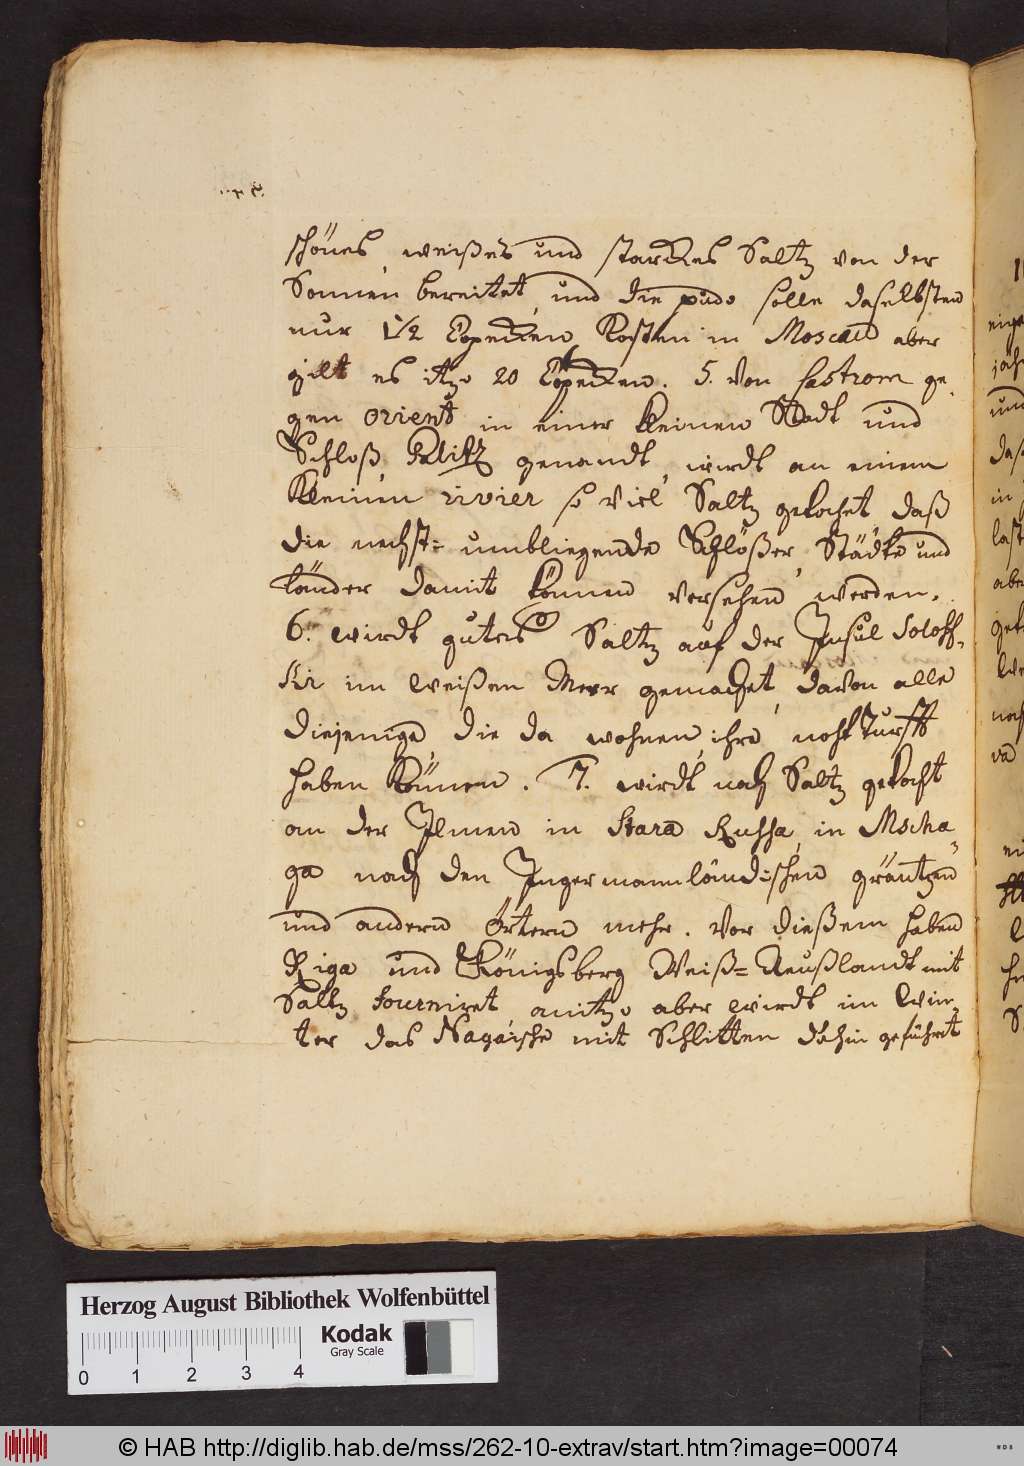 schönes, weißes und starckes Saltz von der
Sonnen bereitet, und die pudo solle daselbsten
nur 1½ Copecken Kosten in Moscau aber
gilt es itzo 20 Copecken. 5. Von Castrom ge-
gen orient in einer Kleinen Stadt und
Schloß, genandt, wirdt an einem
Kleinen rivier so viel Saltz gekochet daß
die nechst- umbliegende Schlößer, Städte und
länder damit können versehen werden.
6. wirdt gutes Saltz auf der Insul Soloff-
ki im Weißen Meer gemachet, davon alle
diejenige, die da wohnen, ihre nohtturfft
haben können. 7. wirdt noch Saltz gekocht
an der Ilmen in Stara Russa, in Mscha-
ga nach den Ingermannländischen gräntzen
und andern Örtern mehr. Vor dießem haben
Riga und Königsberg Weiß-Reußlandt mit
Saltz fourniret, anitzo aber wirdt im Win-
ter das Nagaische mit Schlitten dahin geführet
Herzog August Bibliothek Wolfenbüttel
Kodak
Gray Scale
0 1 2 3 4
© HAB http://diglib.hab.de/mss/262-10-extrav/start.htm?image=00074